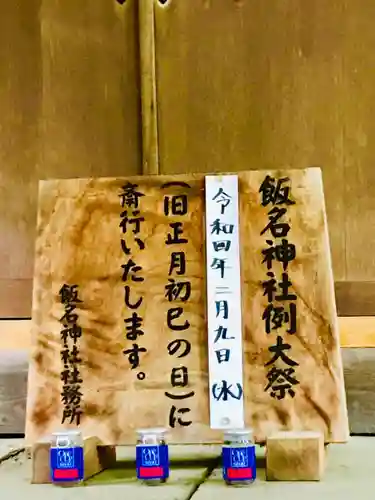 飯名神社例大祭
令和四年二月九日(水)
(旧正月初巳の日)に
斎行いたします。
飯名神社社務所